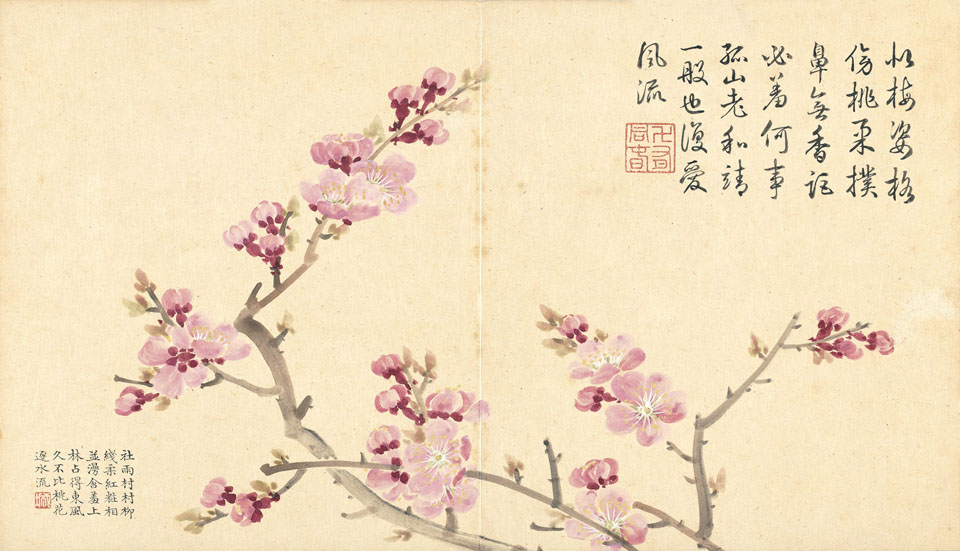 似梅姿格
傍桃柔撲
鼻無香詎
必羞何事
孤山老和靖
一般也復愛
風流
社雨村村柳
綫柔紅粧相
並漫含羞上
林占得東風
久不比桃花
逐水流